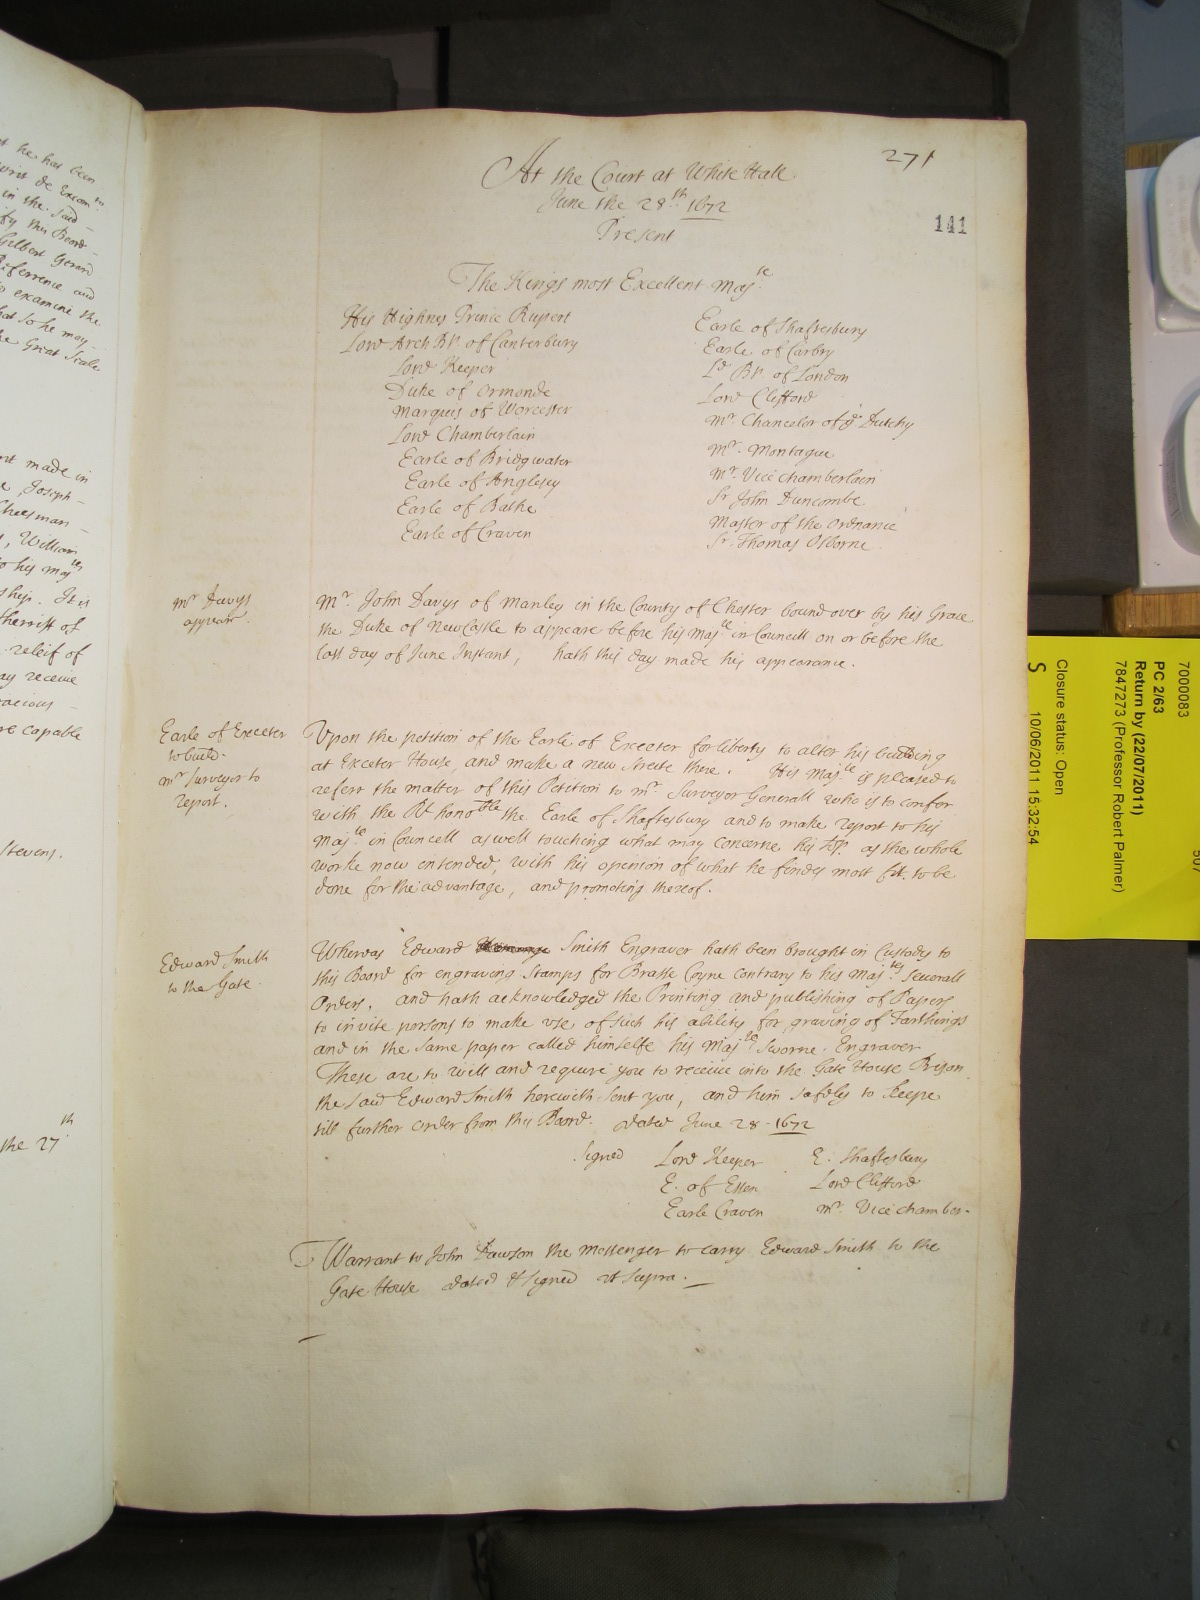 t he has been
writ de Excom to
in the said
fy this Board
Gilbert Gerard
difference and
o examine the
hat so he may
he Great Seale
nt made in
e Joseph
Cheesman
, William
o his maj tes
ship. It is
herriff of
releif of
ay receive
racious
re capable
Stevens.
the 27th
271
141
At the Court at White Hall
June the 28th 1672
Present
The Kings most Excellent Maj te
His Highnes Prince Rupert
Lord Arch Bp. of Canterbury
Lord Keeper
Duke of Ormonde
Marquis of Worcester
Lord Chamberlain
Earle of Bridgwater
Earle of Anglesey
Earle of Bathe
Earle of Craven
Earle of Shaftesbury
Earle of Carbry
Ld Bp. of London
Lord Clifford
Mr Chancelor of ye Dutchy
Mr. Montague
Mr. Vice Chamberlain
Sr John Duncombe
Master of the Ordnance
Sr. Thomas Osborne
Mr Davys
appear.
Mr. John Davys of Manley in the County of Chester bound over by his Grace
the Duke of NewCastle to appeare before his Maj te in Councill on or before the
last day of June Instant, hath this day made his appearance.
Earle of Exceter
to build.
Mr Surveyor to
report.
Upon the petition of the Earle of Exceter for liberty to alter his building
at Exceter House, and make a new Streete there. His Maj te is pleased to
referr the matter of this Petition to Mr Surveyor Generall who is to confer
with the Rt hono ble the Earle of Shaftesbury and to make report to his
Maj te in Councell aswell touching what may concerne his Lsp. as the whole
worke now entended, with his opinion of what he findes most fit to be
done for the advantage, and promoting thereof.
Edward Smith
to the Gate
Whereas Edward Smith Engraver hath been brought in Custody to
this Board for engraving Stamps for Brasse Coyne contrary to his Maj tes severall
Orders, and hath acknowledged the Printing and publishing of Papers
to invite persons to make use of such his ability for graving of Farthings
and in the same paper called himselfe his Maj tes Sworne Engraver
These are to will and require you to receive into the Gate House Prison
the said Edward Smith herewith sent you, and him safely to keepe
till further order from this Board. Dated June 28 - 1672
Signed Lord Keeper E. Shaftesbury
E. of Essex Lord Clifford
Earle Craven Mr. Vice chamber-
Warrant to John Dawson the Messenger to carry Edward Smith to the
Gate House dated & signed ut supra.
7000083
PC 2/63
Return by (22/07/2011)
7847273 (Professor Robert Palmer)
Closure status: Open
S 10/06/2011 15:32:54